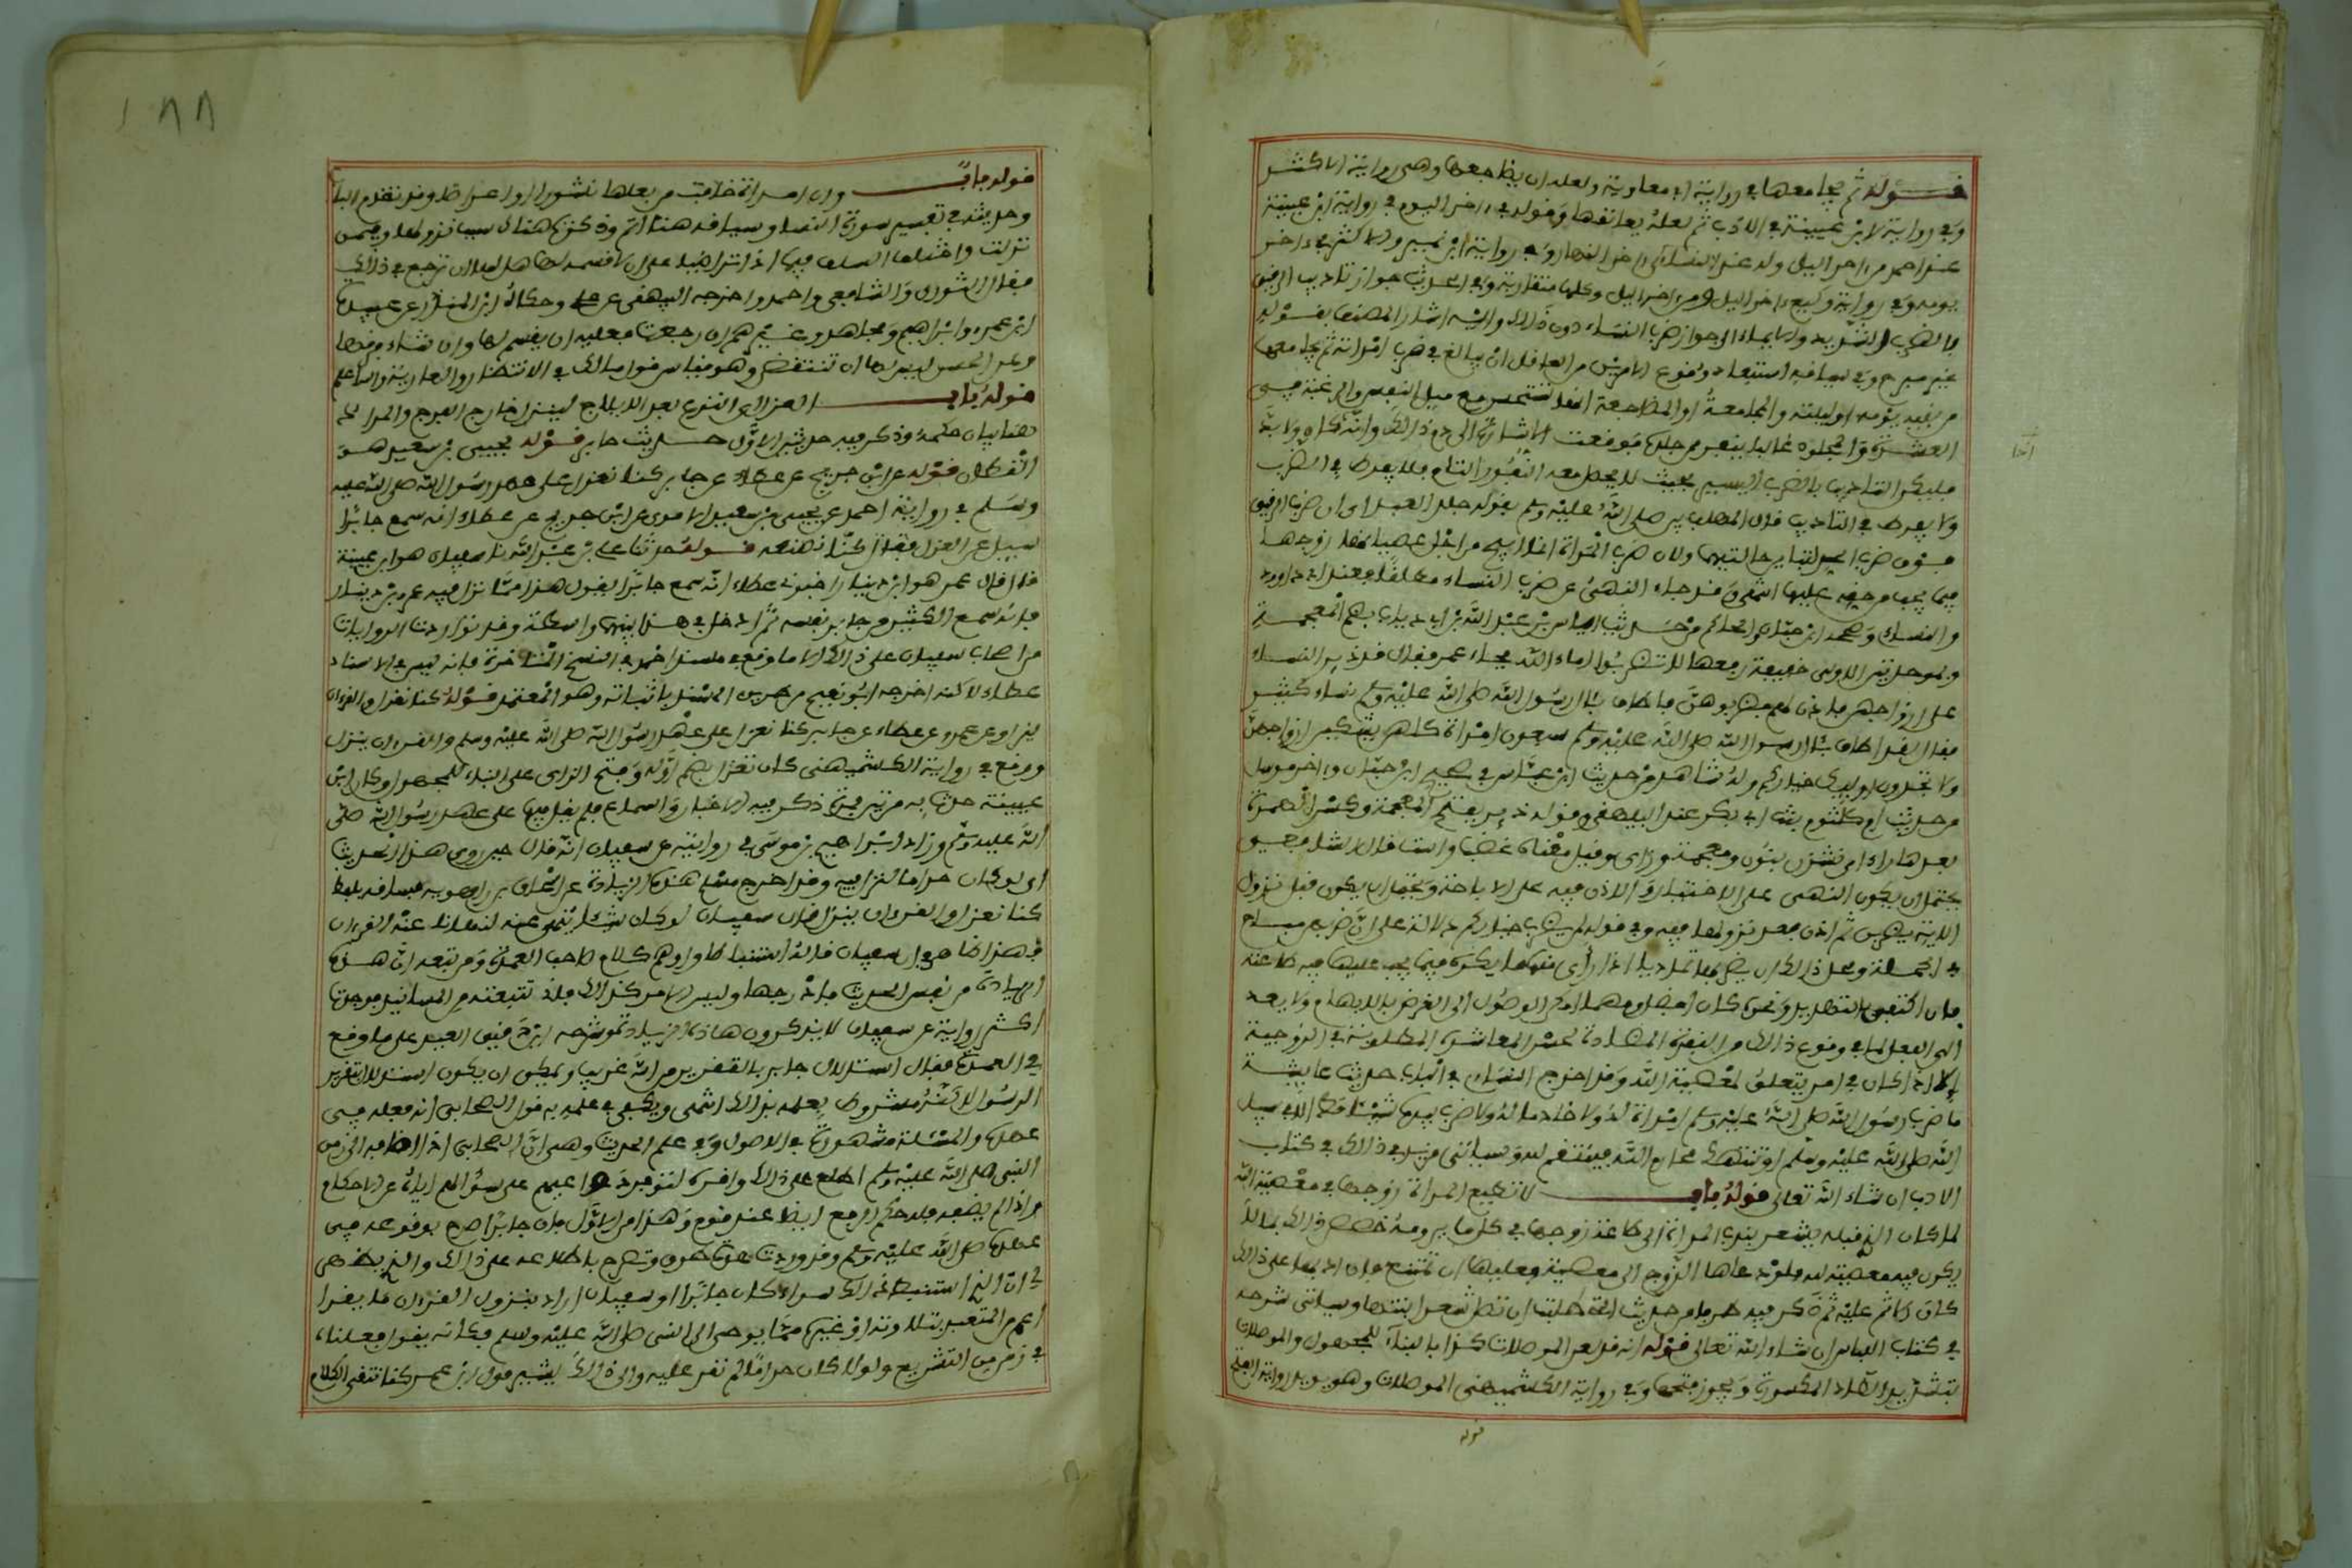 قوله ثم يجامعها في رواية ابي معاوية ولعله ان يضاجعها وهي رواية الاكثر
وفي رواية لابن عيينة في الادب ثم لعله يعانقها وقوله في ءاخر اليوم في رواية ابن عيينة
عند احمد من ءاخر اليل وله عند النساءي ءاخر النهار وفي رواية ابن نمير والاكثر في ءاخر
يومه وفي رواية وكيع ءاخر اليل او من ءاخر اليل وكلها متقاربة وفي الحديث جواز تاديب الرقيق
بالضرب الشديد والايماء الى جواز ضرب النساء دون ذلك واليه اشار المصنف بقوله
غير مبرح وفي سياقه استبعاد وقوع الامرين من العاقل ان يبالغ في ضرب امراته ثم يجامعها
من بقية يومه او ليلته والمجامعة او المضاجعة انما تستحسن مع ميل النفس والرغبة في
العشرة والمجلود غالبا ينفر ممن جلده فوقعت الاشارة الى ذم ذلك وانه كان ولا بد
فليكن التاديب بالضرب اليسير بحيث لا يحصل معه النفور التام فلا يفرط في الضرب
ولا يفرط في التاديب قال المهلب بين صلى الله عليه وسلم بقوله جلد العبد ان ضرب الرقيق
فوق ضرب الحر لتباين حالتيهما ولان ضرب المراة انما ابيح من اجل عصيانها زوجها
فيما يجب من حقه عليها انتهى وقد جاء النهي عن ضرب النساء مطلقا فعند ابي داوود
والنساءي وصححه ابن حبان والحاكم من حديث اياس بن عبد الله بن ابي ذياب بضم المعجمة
وبموحدتين الاولى خفيفة رفعه لا تضربوا اماء الله فجاء عمر فقال قد ذير النساء
على ازواجهن فاذن لهم فضربوهن فاطاف بئال رسول الله صلى الله عليه وسلم نساء كثير
فقال لقد اطاف بئال رسول الله صلى الله عليه وسلم سبعون امراة كلهن يشكين ازواجهن
ولا تجدون اولئك خياركم وله شاهد من حديث ابن عباس في صحيح ابن حبان وءاخر مرسل
من حديث ام كلثوم بنت ابي بكر عند البيهقي وقوله ذير بفتح المعجمة وكسر الهمزة
بعدها راء اي نشز بنون ومعجمة وزاي وقيل معناه غضب واستب قال الشافعي
يحتمل ان يكون النهي على الاختيار والاذن فيه على الاباحة ويحتمل ان يكون قبل نزول
الاية بضربهن ثم اذن بعد نزولها فيه وفي قوله لن يضرب خياركم دلالة على ان ضربهن مباح
في الجملة ومحل ذلك ان يضربها تاديبا اذا رأى منها ما يكره فيما يجب عليها فيه طاعته
فان اكتفى بالتهديد ونحوه كان افضل ومهما امكن الوصول الى الغرض بالايهام لا يعدل
الى الفعل لما في وقوع ذلك من النفرة المضادة لحسن المعاشرة المطلوبة في الزوجية
الا اذا كان في امر يتعلق بمعصية الله وقد اخرج النساءي في الباب حديث عايشة
ما ضرب رسول الله صلى الله عليه وسلم امراة له ولا خادما له ولا ضرب بيده شيئا قط الا في سبيل
الله او تنتهك محارم الله فينتقم لله وسياتي مزيد في ذلك في كتاب
الادب ان شاء الله تعالى قوله باب لا تطيع المراة زوجها في معصية الله
لما كان الذي قبله يشعر بندب المراة الى طاعة زوجها في كل ما يرومه خصص ذلك بما لا
يكون فيه معصية لله فلو دعاها الزوج الى معصية فعليها ان تمتنع فان ادبها على ذلك
كان الاثم عليه ثم ذكر فيه طرفا من حديث التي طلبت ان تصل شعر ابنتها وسياتي شرحه
في كتاب اللباس ان شاء الله تعالى قوله انه قد لعن الموصلات كذا بالبناء للمجهول والموصلات
بتشديد الصاد المكسورة ويجوز فتحها وفي رواية الكشميهني الموصلات وهو يويد رواية الفتح
قوله
١٨٨
قوله باب وان امراة خافت من بعلها نشوزا او اعراضا وقد تقدم الباب
وحديثه في تفسير سورة النساء وسياقه هنا اتم وذكرت هناك سبب نزولها وفيمن
نزلت واختلف السلف فيما اذا تراضيا على ان لا قسمة لها هل لها ان ترجع في ذلك
فقال الثوري والشافعي واحمد واخرجه البيهقي عن علي وحكاه ابن المنذر عن عبيدة
ابن عمرو وابراهيم ومجاهد وغيرهم ان رجعت فعليه ان يقسم لها وان شاء فارقها
وعن الحسن ليس لها ان تنتقض وهو قياس قول مالك في الانتظار والعارية والله اعلم
قوله باب العزل اي النزع بعد الايلاج لينزل خارج الفرج والمراد
هنا بيان حكمه وذكر فيه حديثين الاول حديث جابر قوله يحيى بن سعيد هو
القطان قوله عن ابن جريج عن عطاء عن جابر كنا نعزل على عهد رسول الله صلى الله عليه
وسلم في رواية احمد عن يحيى بن سعيد الاموي عن ابن جريج عن عطاء انه سمع جابرا
سيل عن العزل فقال كنا نصنعه قوله حدثنا علي بن عبد الله نا سفيان هو ابن عيينة
قال قال عمرو هو ابن دينار اخبرني عطاء انه سمع جابرا يقول هذا مما نزل فيه عمرو بن دينار
فانه سمع الكثير من جابر نفسه ثم ادخل في هذا بينهما واسطة وقد تواردت الروايات
من اصحاب سفيان على ذلك الا ما وقع في مسند احمد في النسخ المتاخرة فانه ليس في الاسناد
عطاء لاكنه اخرجه ابو نعيم من طريق المسند باثباته وهو المعتمد قوله كنا نعزل والقرءان
ينزل وعن عمرو عن عطاء عن جابر كنا نعزل على عهد رسول الله صلى الله عليه وسلم والقرءان ينزل
ووقع في رواية الكشميهني كان نعزل بضم اوله وفتح الزاي على البناء للمجهول وكان ابن
عيينة حدث به مرتين فمرة ذكر فيه الاخبار والسماع فلم يقل فيها على عهد رسول الله صلى
الله عليه وسلم وزاد ابراهيم بن موسى في روايته عن سفيان انه قال حين روى هذا الحديث
اي لو كان حراما لنزل فيه وقد اخرج مسلم هذه الزيادة عن اسحاق بن راهويه فساقه بلفظ
كنا نعزل والقرءان ينزل قال سفيان لو كان شيئا ينهى عنه لنهانا عنه القرءان
فهذا ظاهر في ان سفيان قاله استنباطا واوهم كلام صاحب العمدة ومن تبعه ان هذه
الزيادة من نفس الحديث فادرجها وليس الامر كذلك فاني تتبعته من المسانيد فوجدت
اكثر رواته عن سفيان لا يذكرون هاذه الزيادة وشرحه ابن دقيق العيد على ما وقع
في العمدة فقال استدلال جابر بالتقرير من الله غريب ويمكن ان يكون استدل بتقرير
الرسول لاكنه مشروط بعلمه بذلك انتهى ويكفي في علمه به قول الصحابي انه فعله في
عهده والمسئلة مشهورة في الاصول وفي علم الحديث وهي ان الصحابي اذا اضافه الى زمن
النبي صلى الله عليه وسلم اطلع على ذلك واقره لتوفر دواعيهم على سؤالهم اياه عن الاحكام
واذا لم يضفه فله حكم الرفع ايضا عند قوم وهذا من الاول فان جابرا صرح بوقوعه في
عهده صلى الله عليه وسلم وقد وردت عدة طرق وتصرح باطلاعه على ذلك والذي يظهر
لي ان الذي استنبط ذلك سواء كان جابرا او سفيان اراد بنزول القرءان ما يقرا
اعم من المتعبد بتلاوته او غيره مما يوحى الى النبي صلى الله عليه وسلم فكانه يقول فعلناه
في زمن التشريع ولو كان حراما لم نقر عليه والى ذلك يشير قول ابن عمر كنا نتقي الكلام